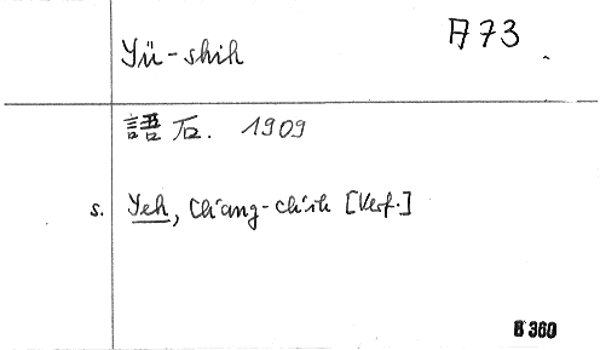 Yü-shih
A 73
語石. 1909
s. Yeh, Ch'ang-ch'ih [Verf.]
B 360